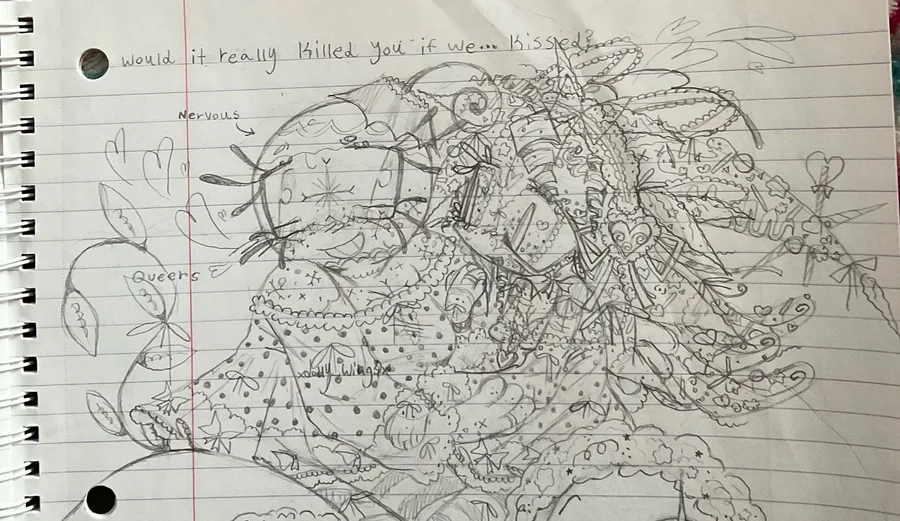 would it really Killed you if we... Kissed?
Nervous
Queers
xoxlly_wingsx